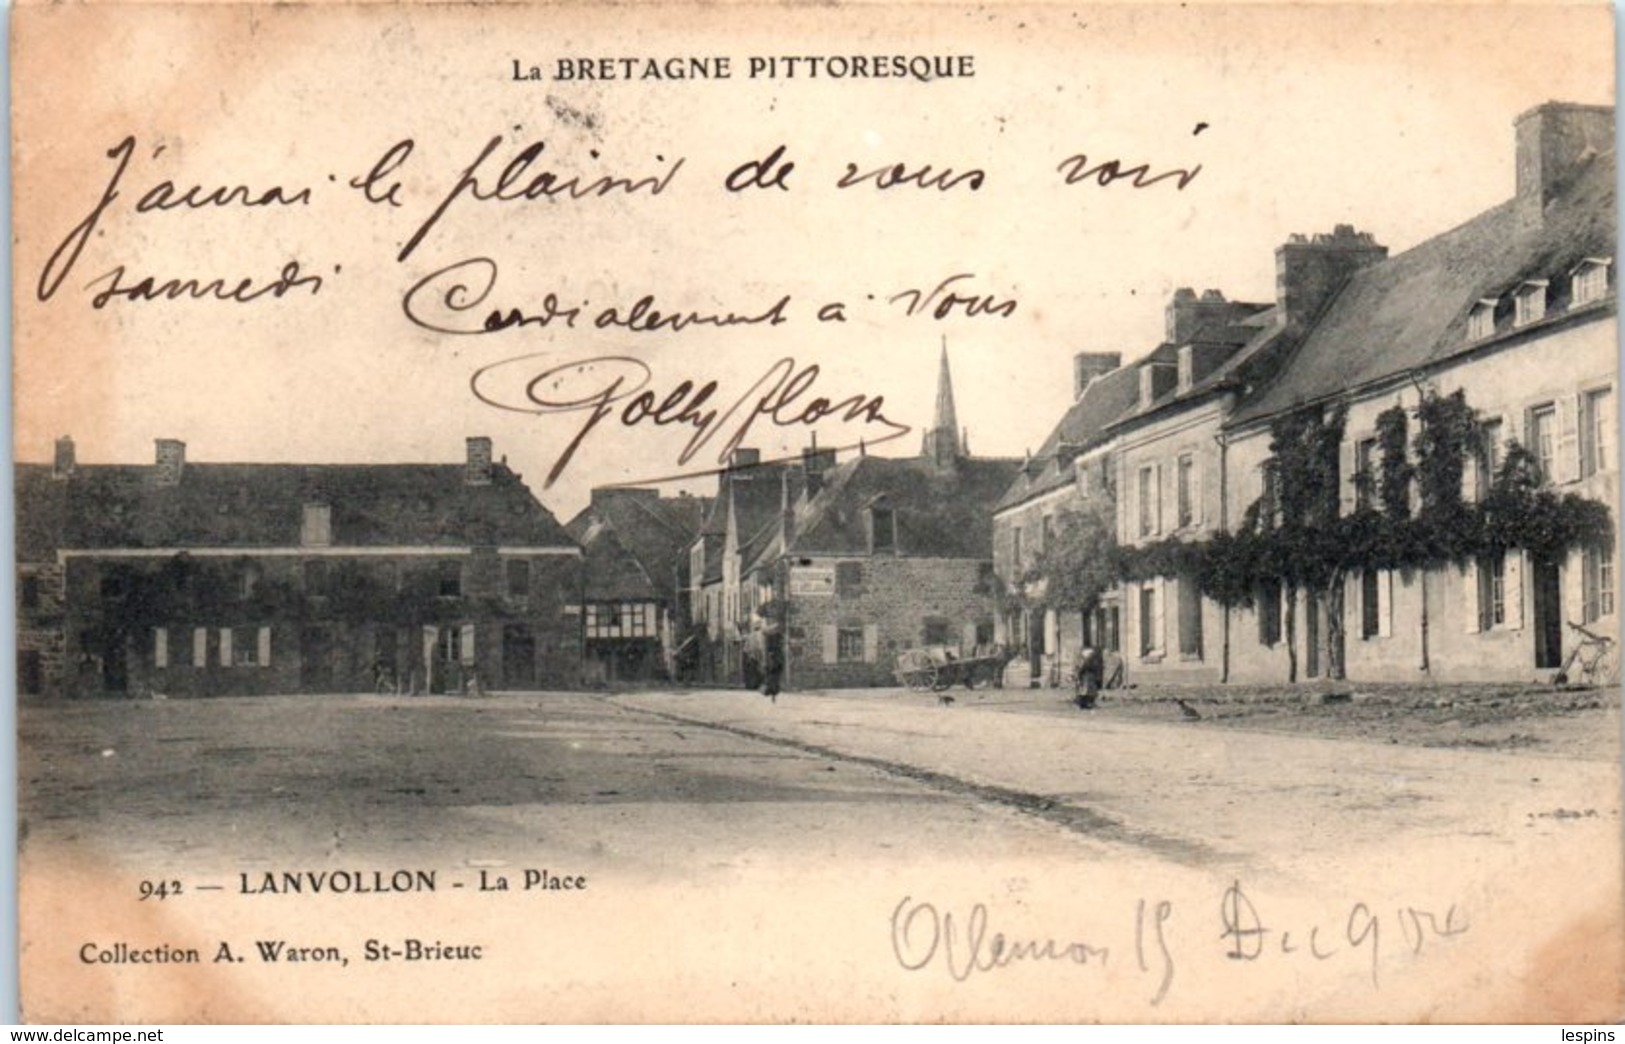 La BRETAGNE PITTORESQUE
J'aurai le plaisir de vous voir
samedi Cordialement à vous
942 — LANVOLLON - La Place
Collection A. Waron, St-Brieuc
15 Dec
www.delcampe.net
lespins